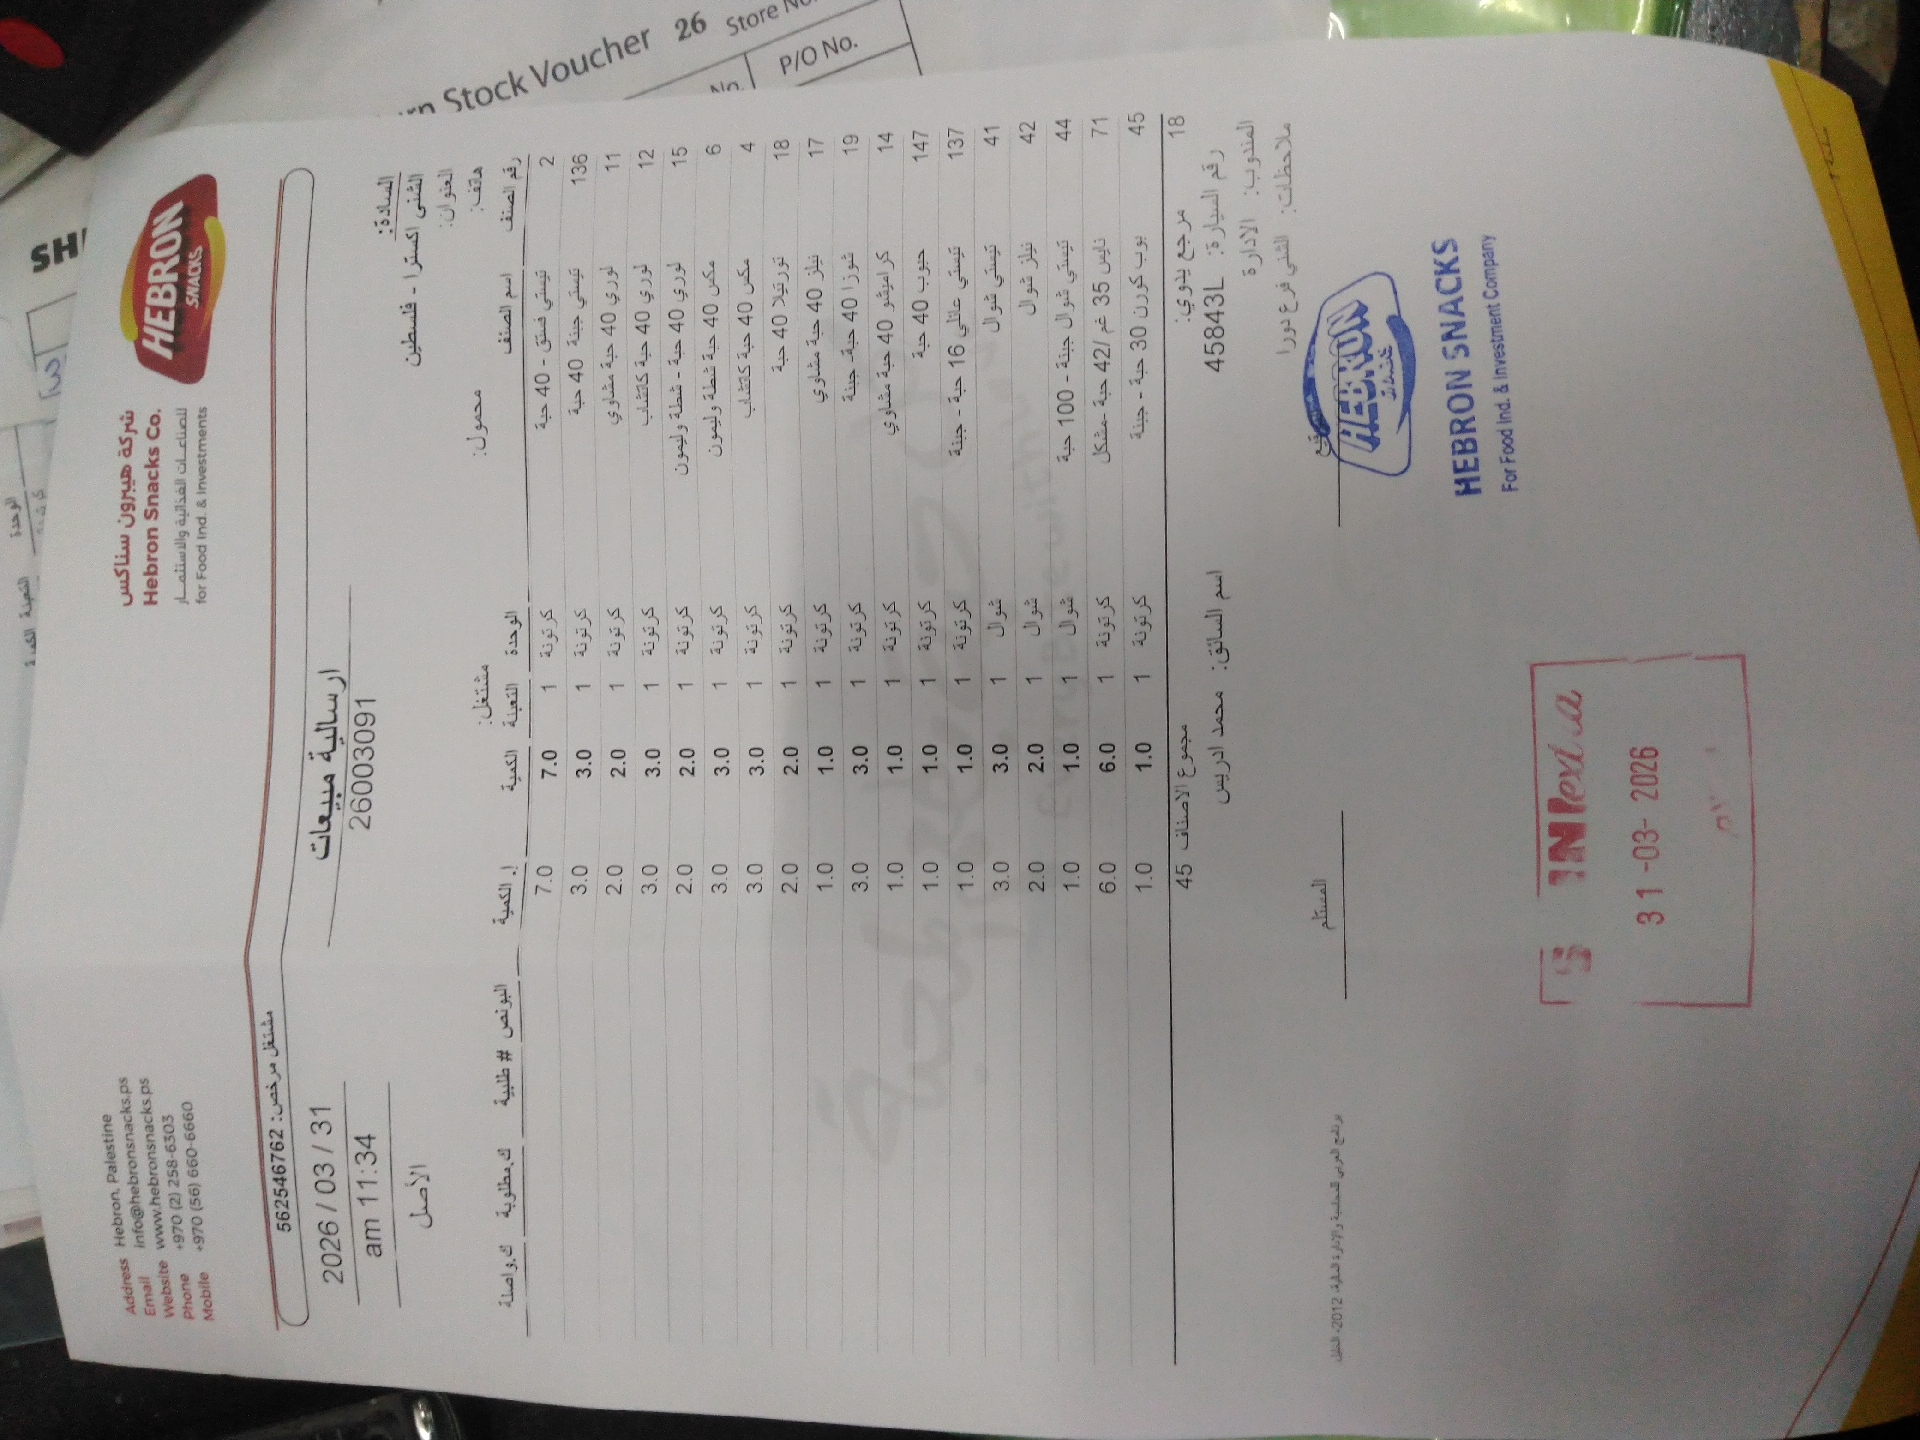 Stock Voucher 26 Store No.
P/O No.
No.
HEBRON
SNACKS
شركة هيبرون سناكس
Hebron Snacks Co.
للصناعات الغذائية والاستثمار
for Food Ind. & Investments
Address Hebron, Palestine
Email info@hebronsnacks.ps
Website www.hebronsnacks.ps
Phone +970 (2) 258-6303
Mobile +970 (56) 660-6660
مشتغل مرخص: 562546762
ارسالية مبيعات
26003091
2026 / 03 / 31
am 11:34
الأصل
السادة:
الشني اكسترا - فلسطين
العنوان:
هاتف: محمول: مشتغل:
رقم الصنف اسم الصنف الوحدة التعبئة الكمية إ. الكمية البونص # طلبية ك.مطلوبة ك.واصلة
2 تيستي فستق - 40 حبة كرتونة 1 7.0 7.0
136 تيستي جبنة 40 حبة كرتونة 1 3.0 3.0
11 لوري 40 حبة مشاوي كرتونة 1 2.0 2.0
12 لوري 40 حبة كاتشاب كرتونة 1 3.0 3.0
15 لوري 40 حبة - شطة وليمون كرتونة 1 2.0 2.0
6 مكس 40 حبة شطة وليمون كرتونة 1 3.0 3.0
4 مكس 40 حبة كاتشاب كرتونة 1 3.0 3.0
18 تورتيلا 40 حبة كرتونة 1 2.0 2.0
17 نيلز 40 حبة مشاوي كرتونة 1 1.0 1.0
19 شورزا 40 حبة- جبنة كرتونة 1 3.0 3.0
14 كراميشو 40 حبة مشاوي كرتونة 1 1.0 1.0
147 حبوب 40 حبة كرتونة 1 1.0 1.0
137 تيستي عائلي 16 حبة - جبنة كرتونة 1 1.0 1.0
41 تيستي شوال شوال 1 3.0 3.0
42 نيلز شوال شوال 1 2.0 2.0
44 تيستي شوال جبنة - 100 حبة شوال 1 1.0 1.0
71 نايس 35 غم /42 حبة -مشكل كرتونة 1 6.0 6.0
45 بوب كورن 30 حبة - جبنة كرتونة 1 1.0 1.0
18 مرجع يدوي: مجموع الاصناف 45
رقم السيارة: 45843L اسم السائق: محمد ادريس
المندوب: الادارة
ملاحظات: الشني فرع دورا
المستلم
HEBRON
HEBRON SNACKS
For Food Ind. & Investment Company
31-03-2026
برنامج العربي للمحاسبة والإدارة المالية 2012، الخليل